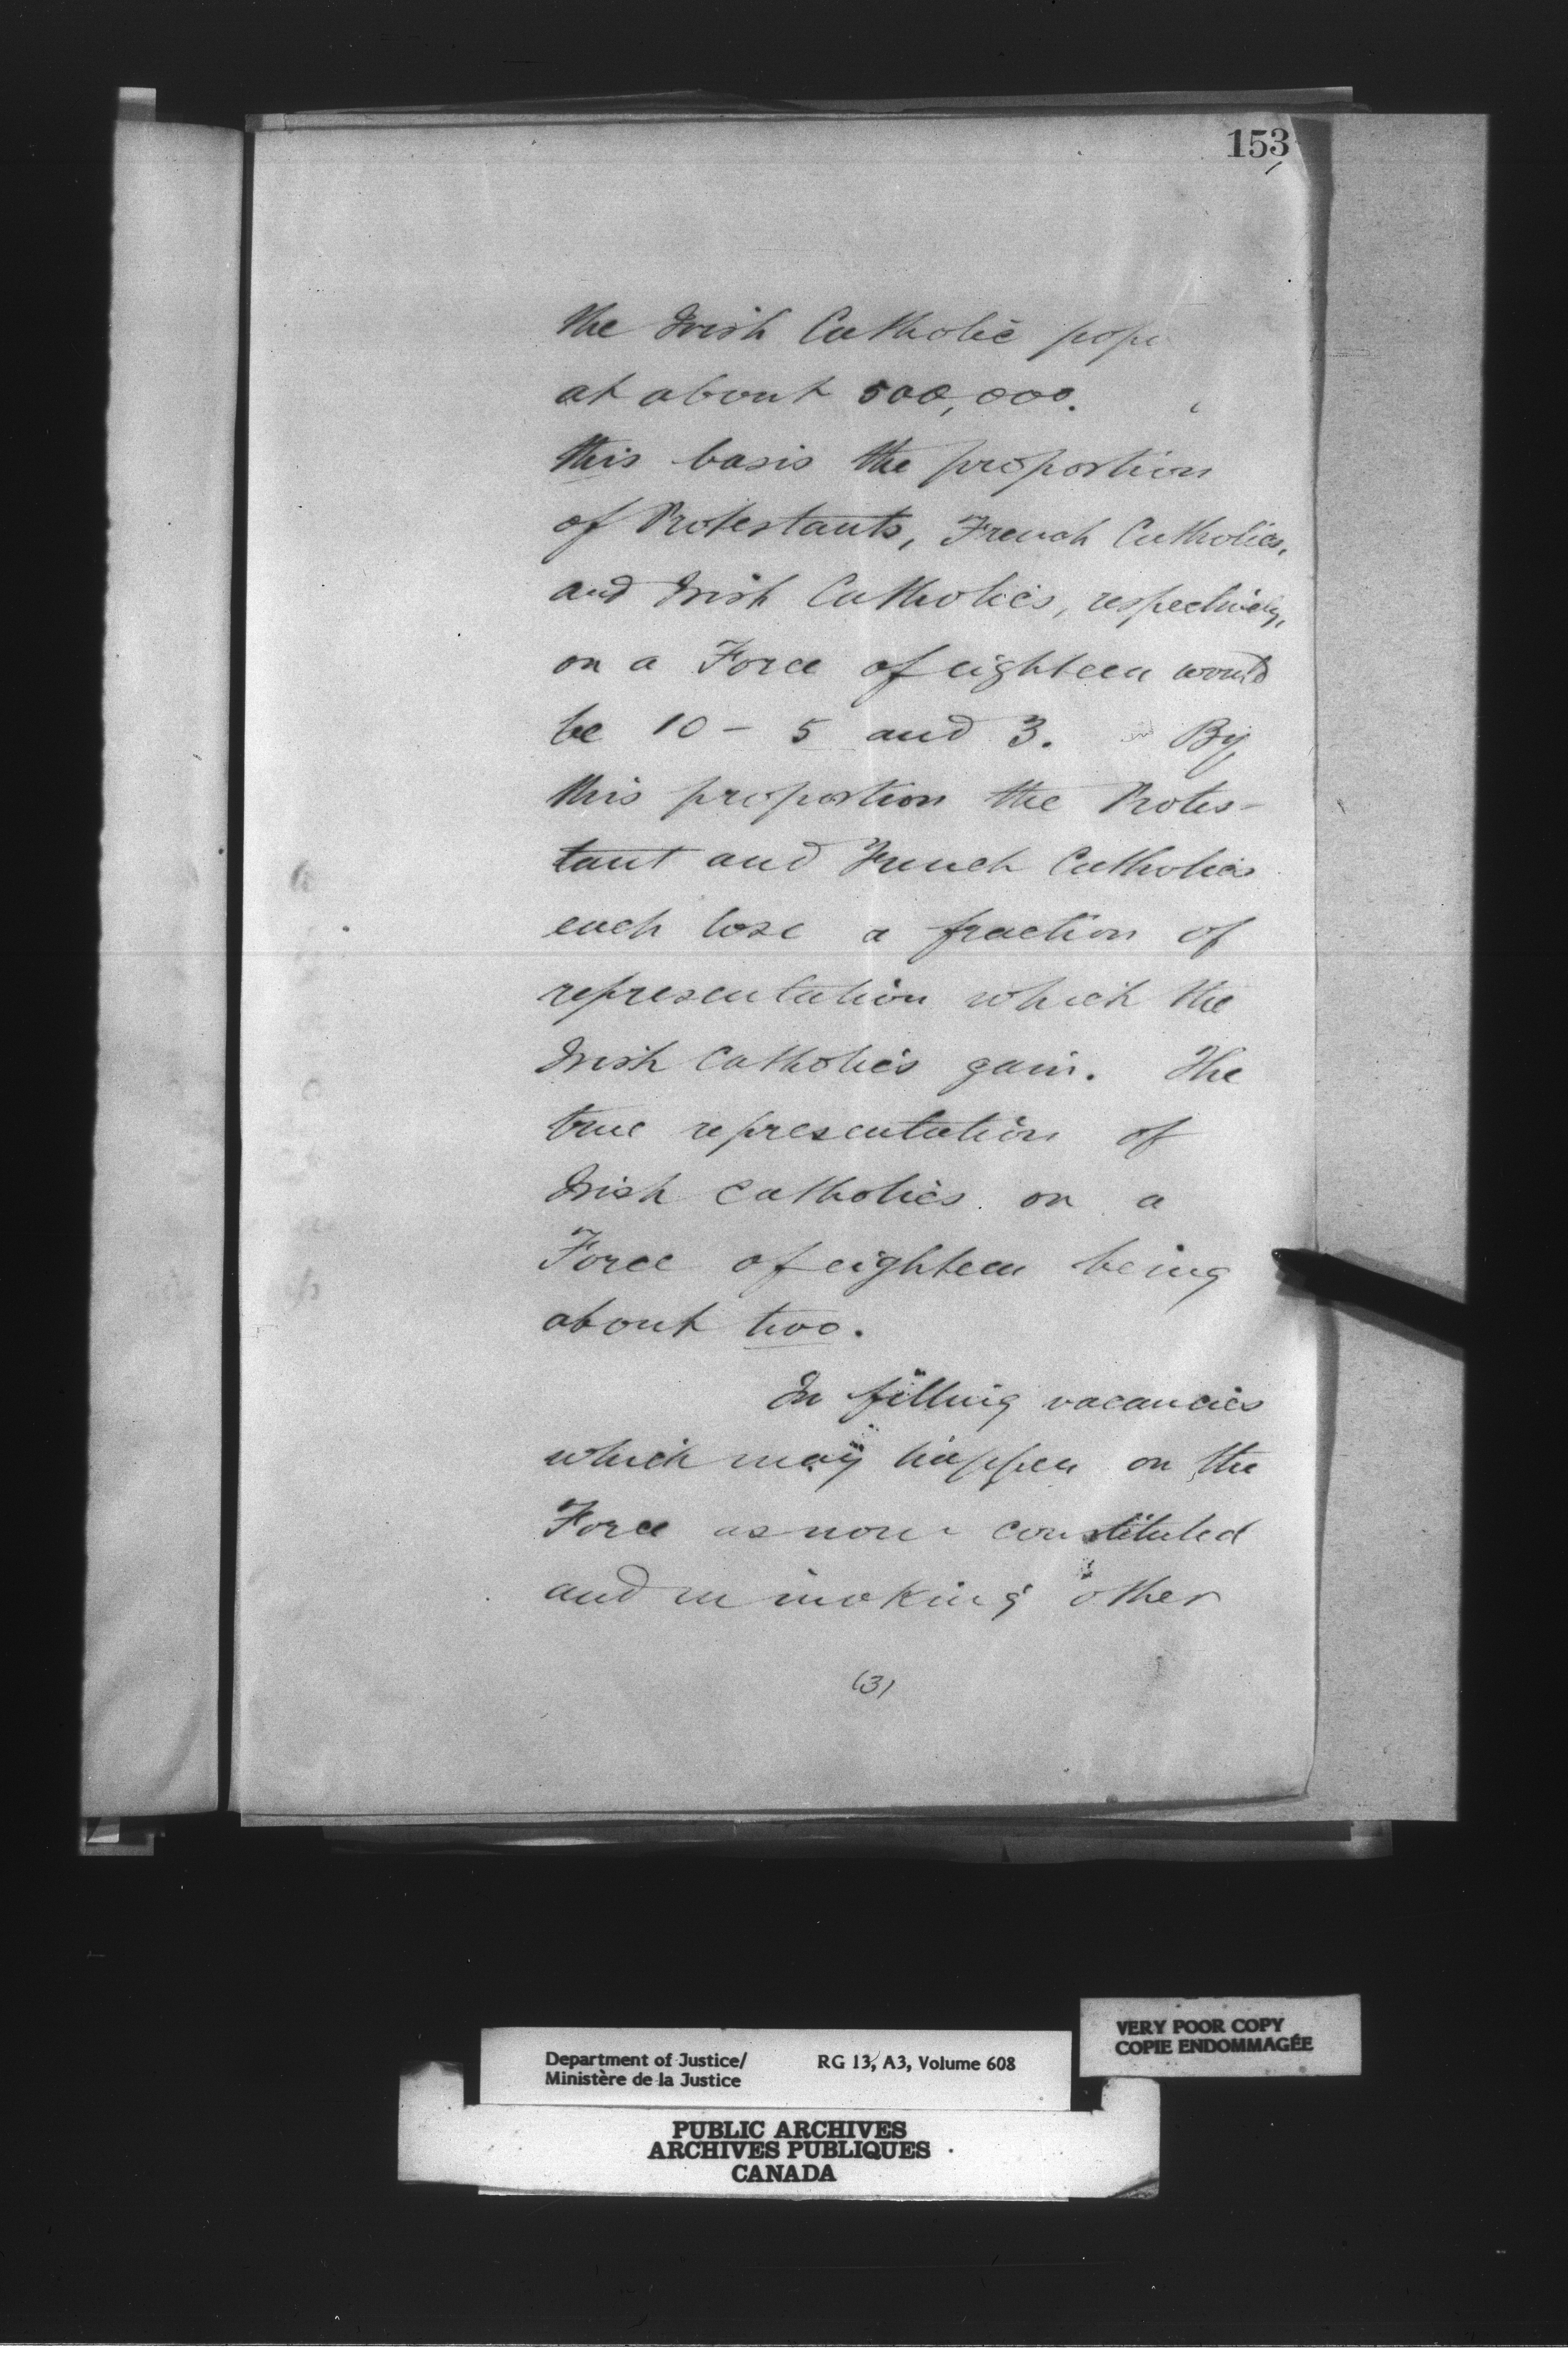 153
the Irish Catholic pop
at about 500,000.
this basis the proportion
of Protestants, French Catholics,
and Irish Catholics, respectively,
on a Force of eighteen would
be 10 - 5 and 3. By
this proportion the Protes-
tant and French Catholics
each lose a fraction of
representation which the
Irish Catholics gain. The
true representation of
Irish Catholics on a
Force of eighteen being
about two.
In filling vacancies
which may happen on the
Force as now constituted
and in making other
(3)
VERY POOR COPY
COPIE ENDOMMAGÉE
Department of Justice/ RG 13, A3, Volume 608
Ministère de la Justice
PUBLIC ARCHIVES
ARCHIVES PUBLIQUES
CANADA